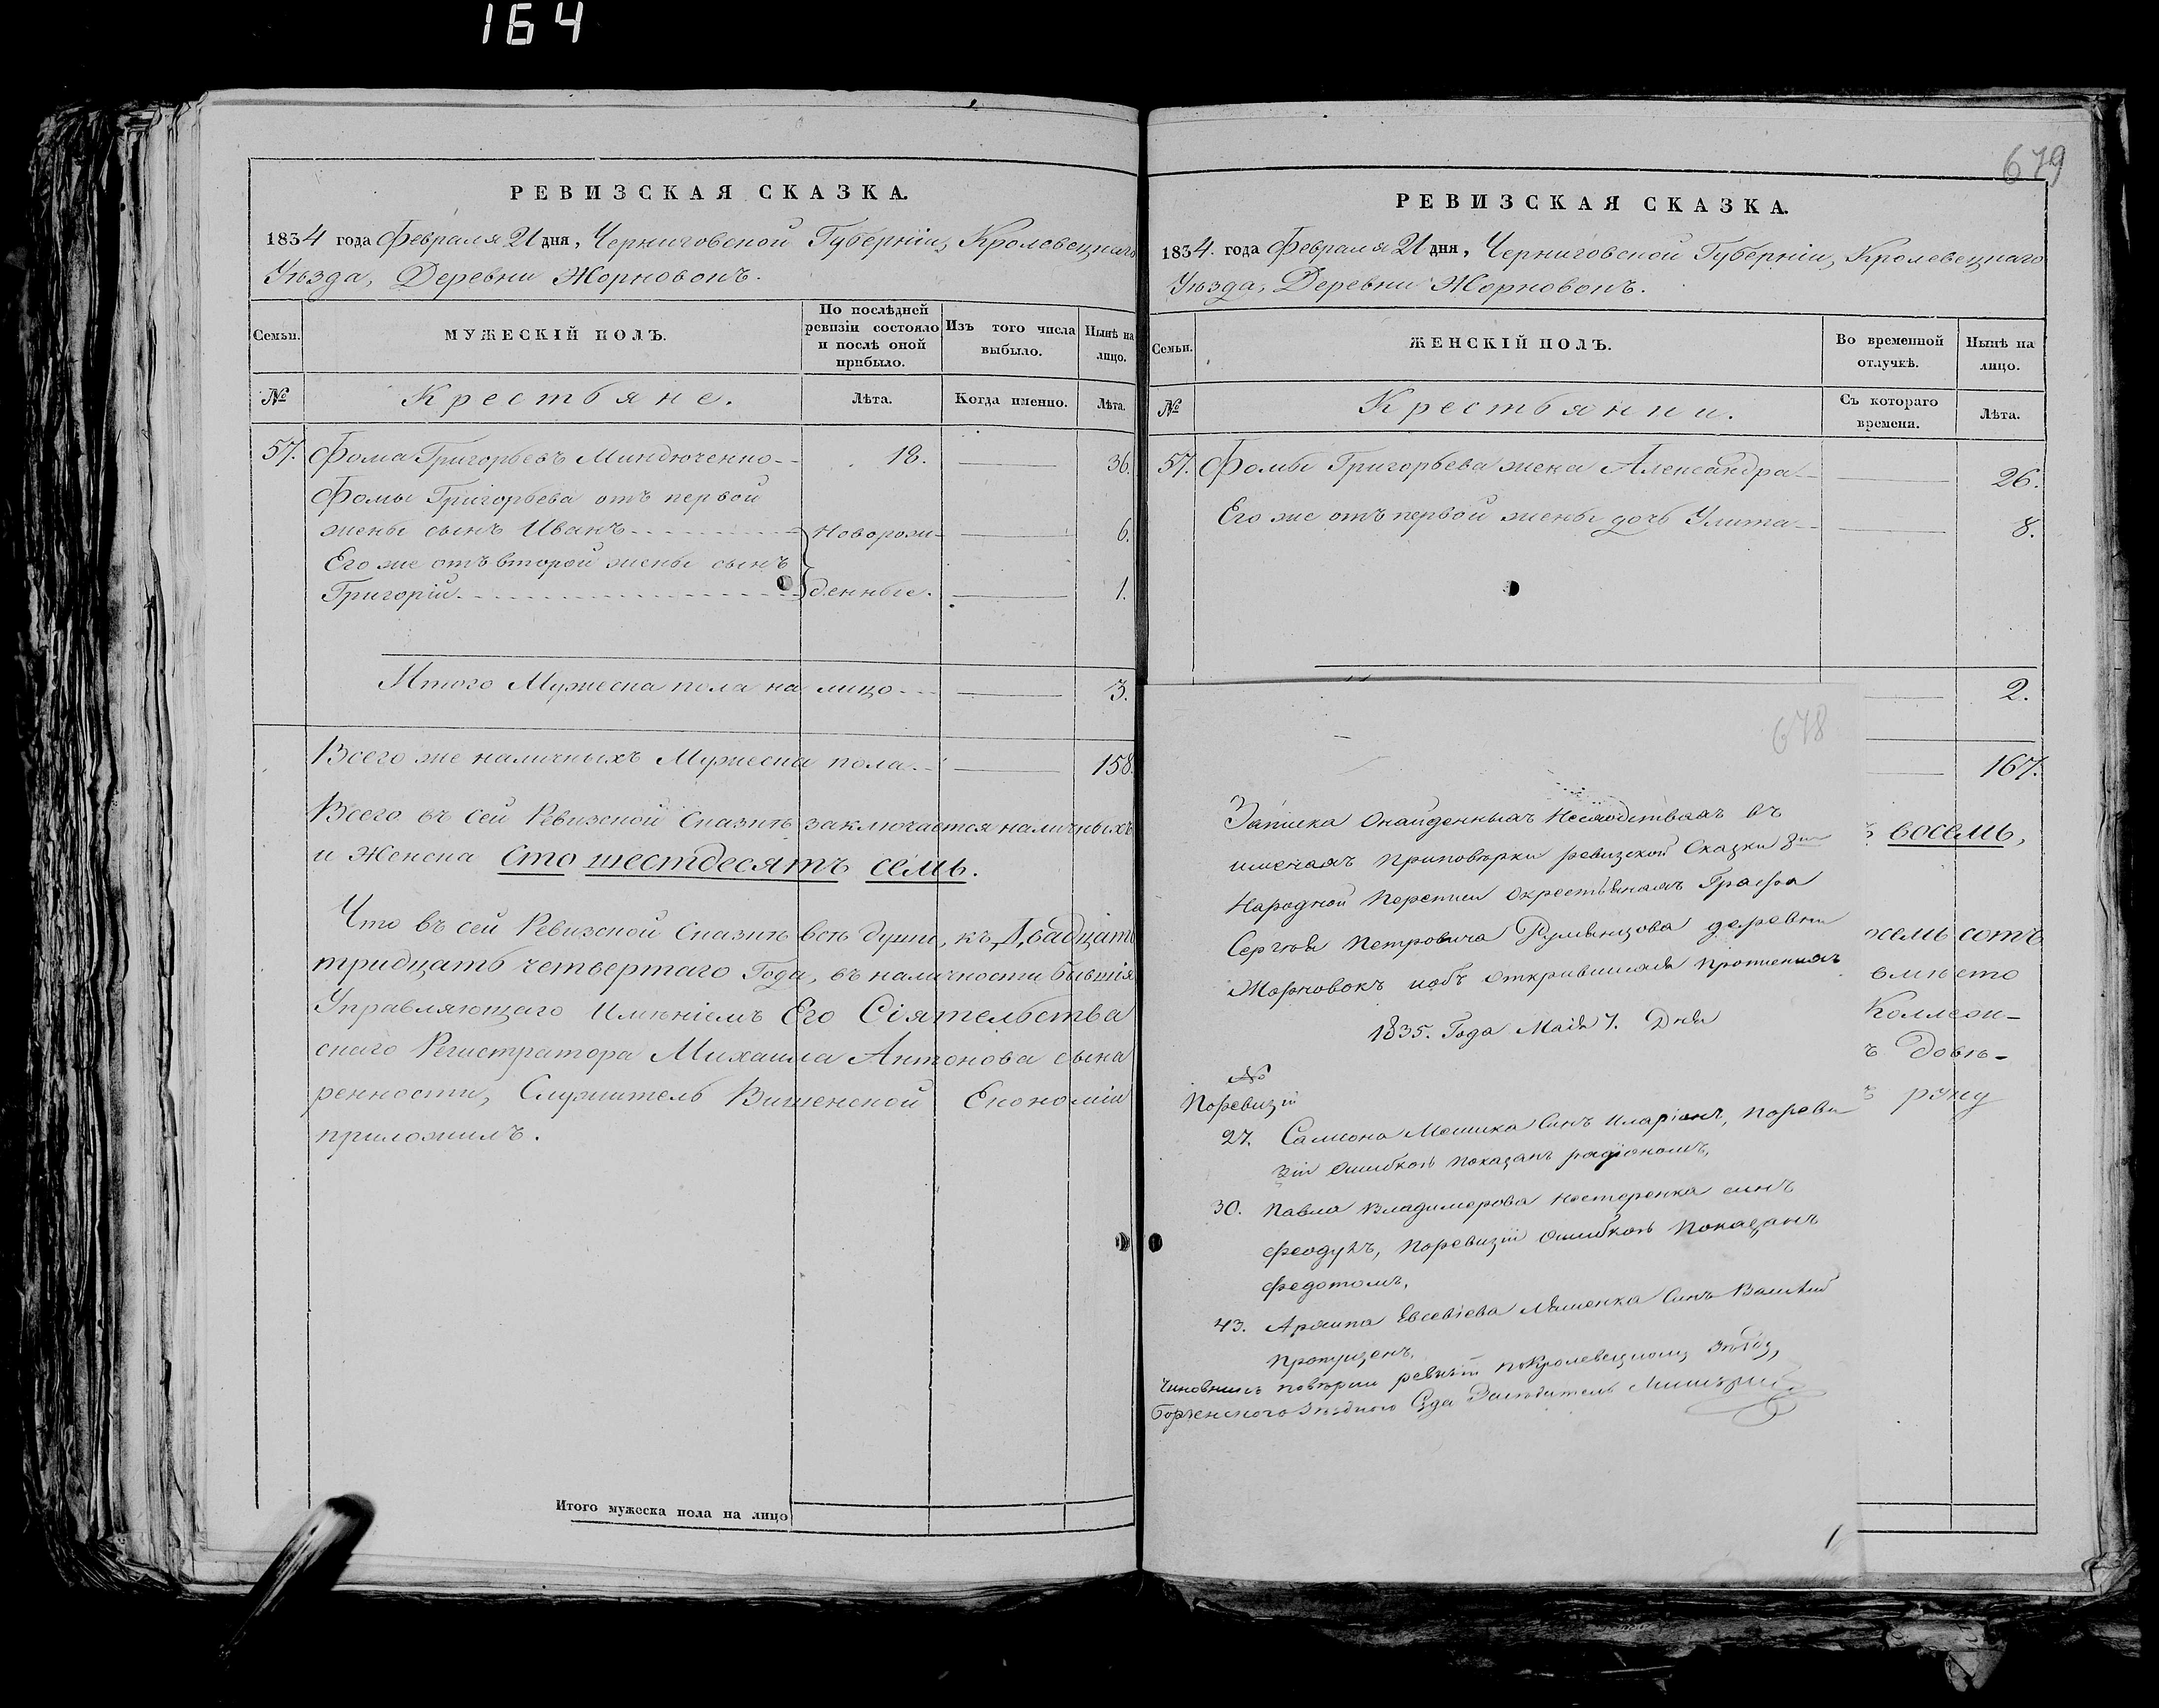 164
РЕВИЗСКАЯ СКАЗКА.
1834 года Февраля 21 дня, Черниговской Губерніи, Кролевецкаго
Уѣзда, Деревни Жорновокъ.
Семьи.
МУЖЕСКІЙ ПОЛЪ.
По послѣдней
ревизіи состояло
и послѣ оной
прибыло.
Изъ того числа
выбыло.
Нынѣ на
лицо.
№
Крестьяне.
Лѣта.
Когда именно.
Лѣта.
57. Фома Григорьевъ Миндюченко 18. 36.
Фомы Григорьева отъ первой
жены сынъ Иванъ Новорож- 6.
Его же отъ второй жены сынъ
Григорій денные. 1.
Итого Мужеска пола на лицо 3.
Всего же наличныхъ Мужеска пола 158.
Всего въ сей Ревизской Сказкѣ заключается наличныхъ
и Женска сто шестдесятъ семь.
Что въ сей Ревизской Сказкѣ всѣ души, къ Двадцать
тридцать четвертаго Года, въ наличности бывшія
Управляющаго Имѣніемъ Его Сіятельства
скаго Регистратора Михаила Антонова сына
ренности, Служитель Вишенской Економіи
приложилъ.
Итого мужеска пола на лицо
679
РЕВИЗСКАЯ СКАЗКА.
1834. года Февраля 21 дня, Черниговской Губерніи, Кролевецкаго
Уѣзда, Деревни Жорновокъ.
Семьи.
ЖЕНСКІЙ ПОЛЪ.
Во временной
отлучкѣ.
Нынѣ на
лицо.
№
Крестьянки.
Съ котораго
времени.
Лѣта.
57. Фомы Григорьева жена Александра 26.
Его же отъ первой жены дочь Улита 8.
2.
167.
восемь,
осемь сотъ
вмѣсто
Коллеги-
ъ Довѣ-
руку
678
Записка Онайденныхъ Несходствахъ въ
именахъ приповѣрки ревизской Сказки 8й
Народной Переписи Окрестьянахъ Графа
Сергѣя Петровича Румянцова деревни
Жорновокъ иобъ открившихся
1835. Года Маія 7. Дня
№
Поревизіи
27. Самиона Мошика Синъ Иларіонъ, Пореви
зіи Ошибкою показанъ радіономъ,
30. Павла Владимерова Нестеренка синъ
Феодулъ, Поревизіи Ошибкою Показанъ
Федотомъ,
43. Архипа Евсевіева Ляшенка Синъ Василій
пропущенъ.
Чиновникъ повѣрки ревизіи по Кролевецкому уѣзду,
Борзенского уѣздного Суда Засѣдатель